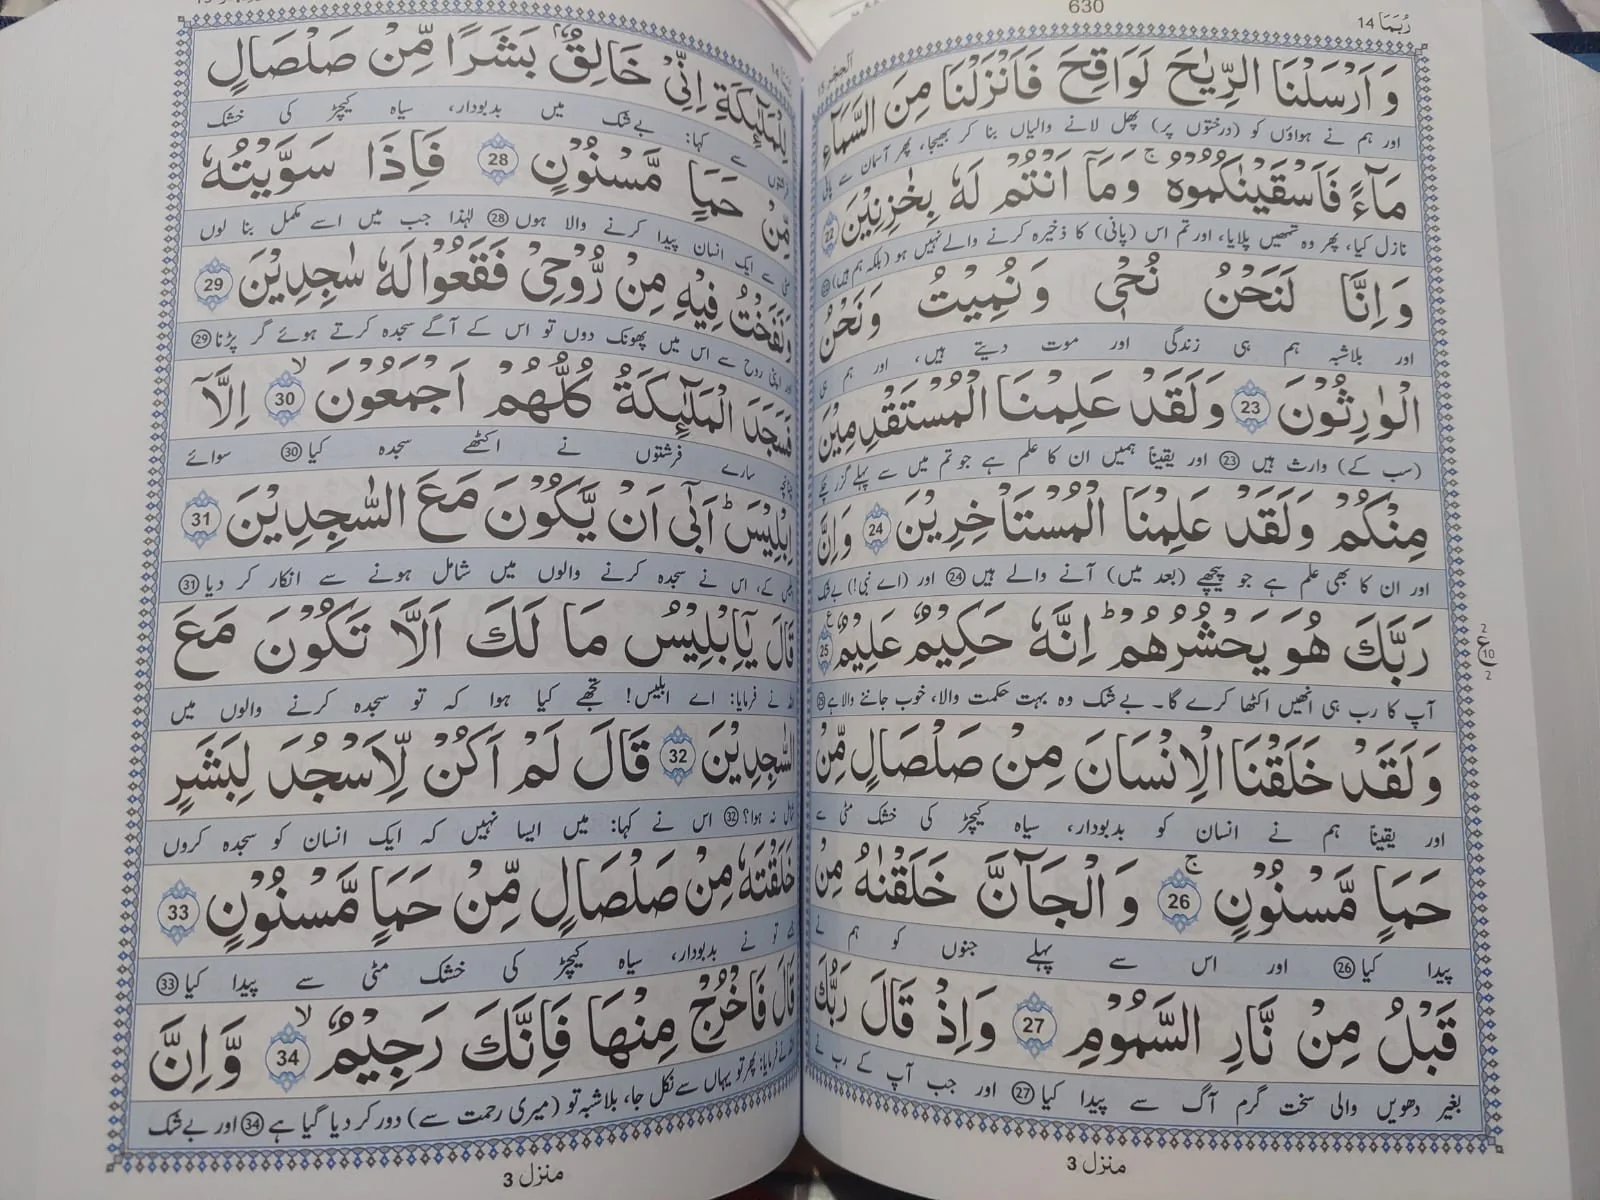 630
رُبَمَا 14
اَلْحِجْر 15
وَ اَرْسَلْنَا الرِّيٰحَ لَوَاقِحَ فَاَنْزَلْنَا مِنَ السَّمَآءِ
اور ہم نے ہواؤں کو (درختوں پر) پھل لانے والیاں بنا کر بھیجا، پھر آسمان سے پانی
مَآءً فَاَسْقَيْنٰكُمُوْهُ ۚ وَ مَاۤ اَنْتُمْ لَهٗ بِخٰزِنِيْنَ 22
نازل کیا، پھر وہ تمھیں پلایا، اور تم اس (پانی) کا ذخیرہ کرنے والے نہیں ہو (بلکہ ہم ہیں) 22
وَ اِنَّا لَنَحْنُ نُحْيٖ وَ نُمِيْتُ وَ نَحْنُ
اور بلاشبہ ہم ہی زندگی اور موت دیتے ہیں، اور ہم ہی
الْوٰرِثُوْنَ 23 وَ لَقَدْ عَلِمْنَا الْمُسْتَقْدِمِيْنَ
(سب کے) وارث ہیں 23 اور یقیناً ہمیں ان کا علم ہے جو تم میں سے پہلے گزر چکے
مِنْكُمْ وَ لَقَدْ عَلِمْنَا الْمُسْتَاْخِرِيْنَ 24 وَ اِنَّ
اور ان کا بھی علم ہے جو پیچھے (بعد میں) آنے والے ہیں 24 اور (اے نبی!) بے شک
رَبَّكَ هُوَ يَحْشُرُهُمْ ؕ اِنَّهٗ حَكِيْمٌ عَلِيْمٌ 25
2 ع 10 2
آپ کا رب ہی انھیں اکٹھا کرے گا۔ بے شک وہ بہت حکمت والا، خوب جاننے والا ہے 25
وَ لَقَدْ خَلَقْنَا الْاِنْسَانَ مِنْ صَلْصَالٍ مِّنْ
اور یقیناً ہم نے انسان کو بدبودار، سیاہ کیچڑ کی خشک مٹی سے
حَمَاٍ مَّسْنُوْنٍ ۚ 26 وَ الْجَآنَّ خَلَقْنٰهُ مِنْ
پیدا کیا 26 اور اس سے پہلے جنوں کو ہم نے
قَبْلُ مِنْ نَّارِ السَّمُوْمِ 27 وَ اِذْ قَالَ رَبُّكَ
بغیر دھویں والی سخت گرم آگ سے پیدا کیا 27 اور جب آپ کے رب نے
منزل 3
لِلْمَلٰٓئِكَةِ اِنِّيْ خَالِقٌۢ بَشَرًا مِّنْ صَلْصَالٍ
سے کہا: بے شک میں بدبودار، سیاہ کیچڑ کی خشک
مِّنْ حَمَاٍ مَّسْنُوْنٍ 28 فَاِذَا سَوَّيْتُهٗ
سے ایک انسان پیدا کرنے والا ہوں 28 لہٰذا جب میں اسے مکمل بنا لوں
وَ نَفَخْتُ فِيْهِ مِنْ رُّوْحِيْ فَقَعُوْا لَهٗ سٰجِدِيْنَ 29
اور اپنی روح سے اس میں پھونک دوں تو اس کے آگے سجدہ کرتے ہوئے گر پڑنا 29
فَسَجَدَ الْمَلٰٓئِكَةُ كُلُّهُمْ اَجْمَعُوْنَ ۙ 30 اِلَّاۤ
چنانچہ سارے فرشتوں نے اکٹھے سجدہ کیا 30 سوائے
اِبْلِيْسَ ؕ اَبٰۤى اَنْ يَّكُوْنَ مَعَ السّٰجِدِيْنَ 31
کے، اس نے سجدہ کرنے والوں میں شامل ہونے سے انکار کر دیا 31
قَالَ يٰۤاِبْلِيْسُ مَا لَكَ اَلَّا تَكُوْنَ مَعَ
اللہ نے فرمایا: اے ابلیس! تجھے کیا ہوا کہ تو سجدہ کرنے والوں میں
السّٰجِدِيْنَ 32 قَالَ لَمْ اَكُنْ لِّاَسْجُدَ لِبَشَرٍ
شامل نہ ہوا؟ 32 اس نے کہا: میں ایسا نہیں کہ ایک انسان کو سجدہ کروں
خَلَقْتَهٗ مِنْ صَلْصَالٍ مِّنْ حَمَاٍ مَّسْنُوْنٍ 33
جسے تو نے بدبودار، سیاہ کیچڑ کی خشک مٹی سے پیدا کیا 33
قَالَ فَاخْرُجْ مِنْهَا فَاِنَّكَ رَجِيْمٌ ۙ 34 وَّ اِنَّ
اللہ نے فرمایا: پھر تو یہاں سے نکل جا، بلاشبہ تو (میری رحمت سے) دور کر دیا گیا ہے 34 اور بے شک
منزل 3